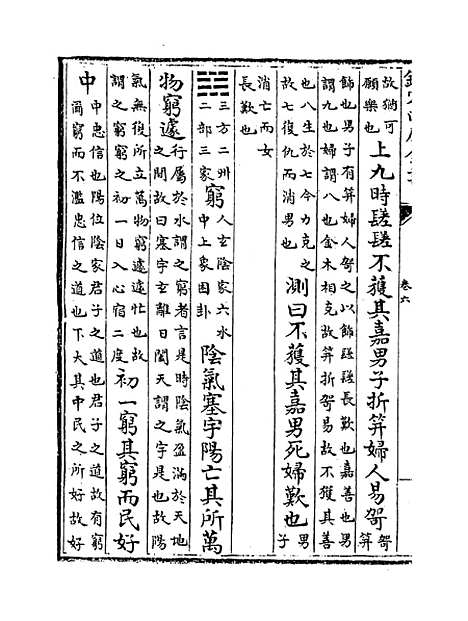 欽定四庫全書
卷六
故猶可願樂也上九時䠡䠡不獲其嘉男子折笄婦人易哿笄哿
飾也男子有笄婦人哿之以飾䠡䠡長歎也嘉善也男
謂九也婦謂八也金木相克故笄折哿易故不獲其善
也八生於七今力克之故七復仇而消男也測曰不獲其嘉男死婦歎也男子
消亡而女長歎也
三方二州二部三家窮人玄陰家六水中上象困卦陰氣塞宇陽亡其所萬
物窮遽行屬於水謂之窮者言是時陰氣盈滿於天地之間故曰塞宇玄離日闔天謂之宇是也故陽
氣無復所立萬物窮遽遽忙也故謂之窮窮之初一日入心宿二度初一窮其窮而民好
中中忠信也陽位陰家君子之道也君子之道故有窮啚窮而不濫忠信之道也下大其中民之所好故好